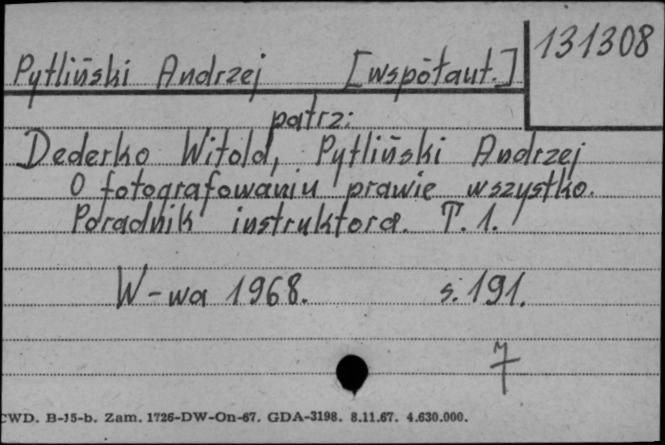 131308
Pytliński Andrzej [współaut.]
patrz:
Dederko Witold, Pytliński Andrzej
O fotografowaniu prawie wszystko.
Poradnik instruktora. T. 1.
W-wa 1968. s. 191.
7
CWD. B-15-b. Zam. 1726-DW-On-67. GDA-3198. 8.11.67. 4.630.000.